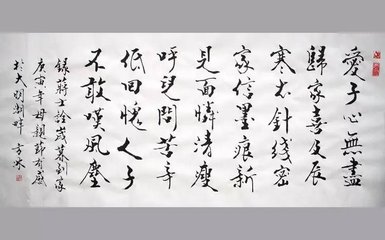 愛子心無盡
歸家喜及辰
寒衣針綫密
家信墨痕新
見面憐清瘦
呼兒問苦辛
低回愧人子
不敢嘆風塵
錄蔣士銓歲暮到家
庚寅年母親節有感
於大明湖畔